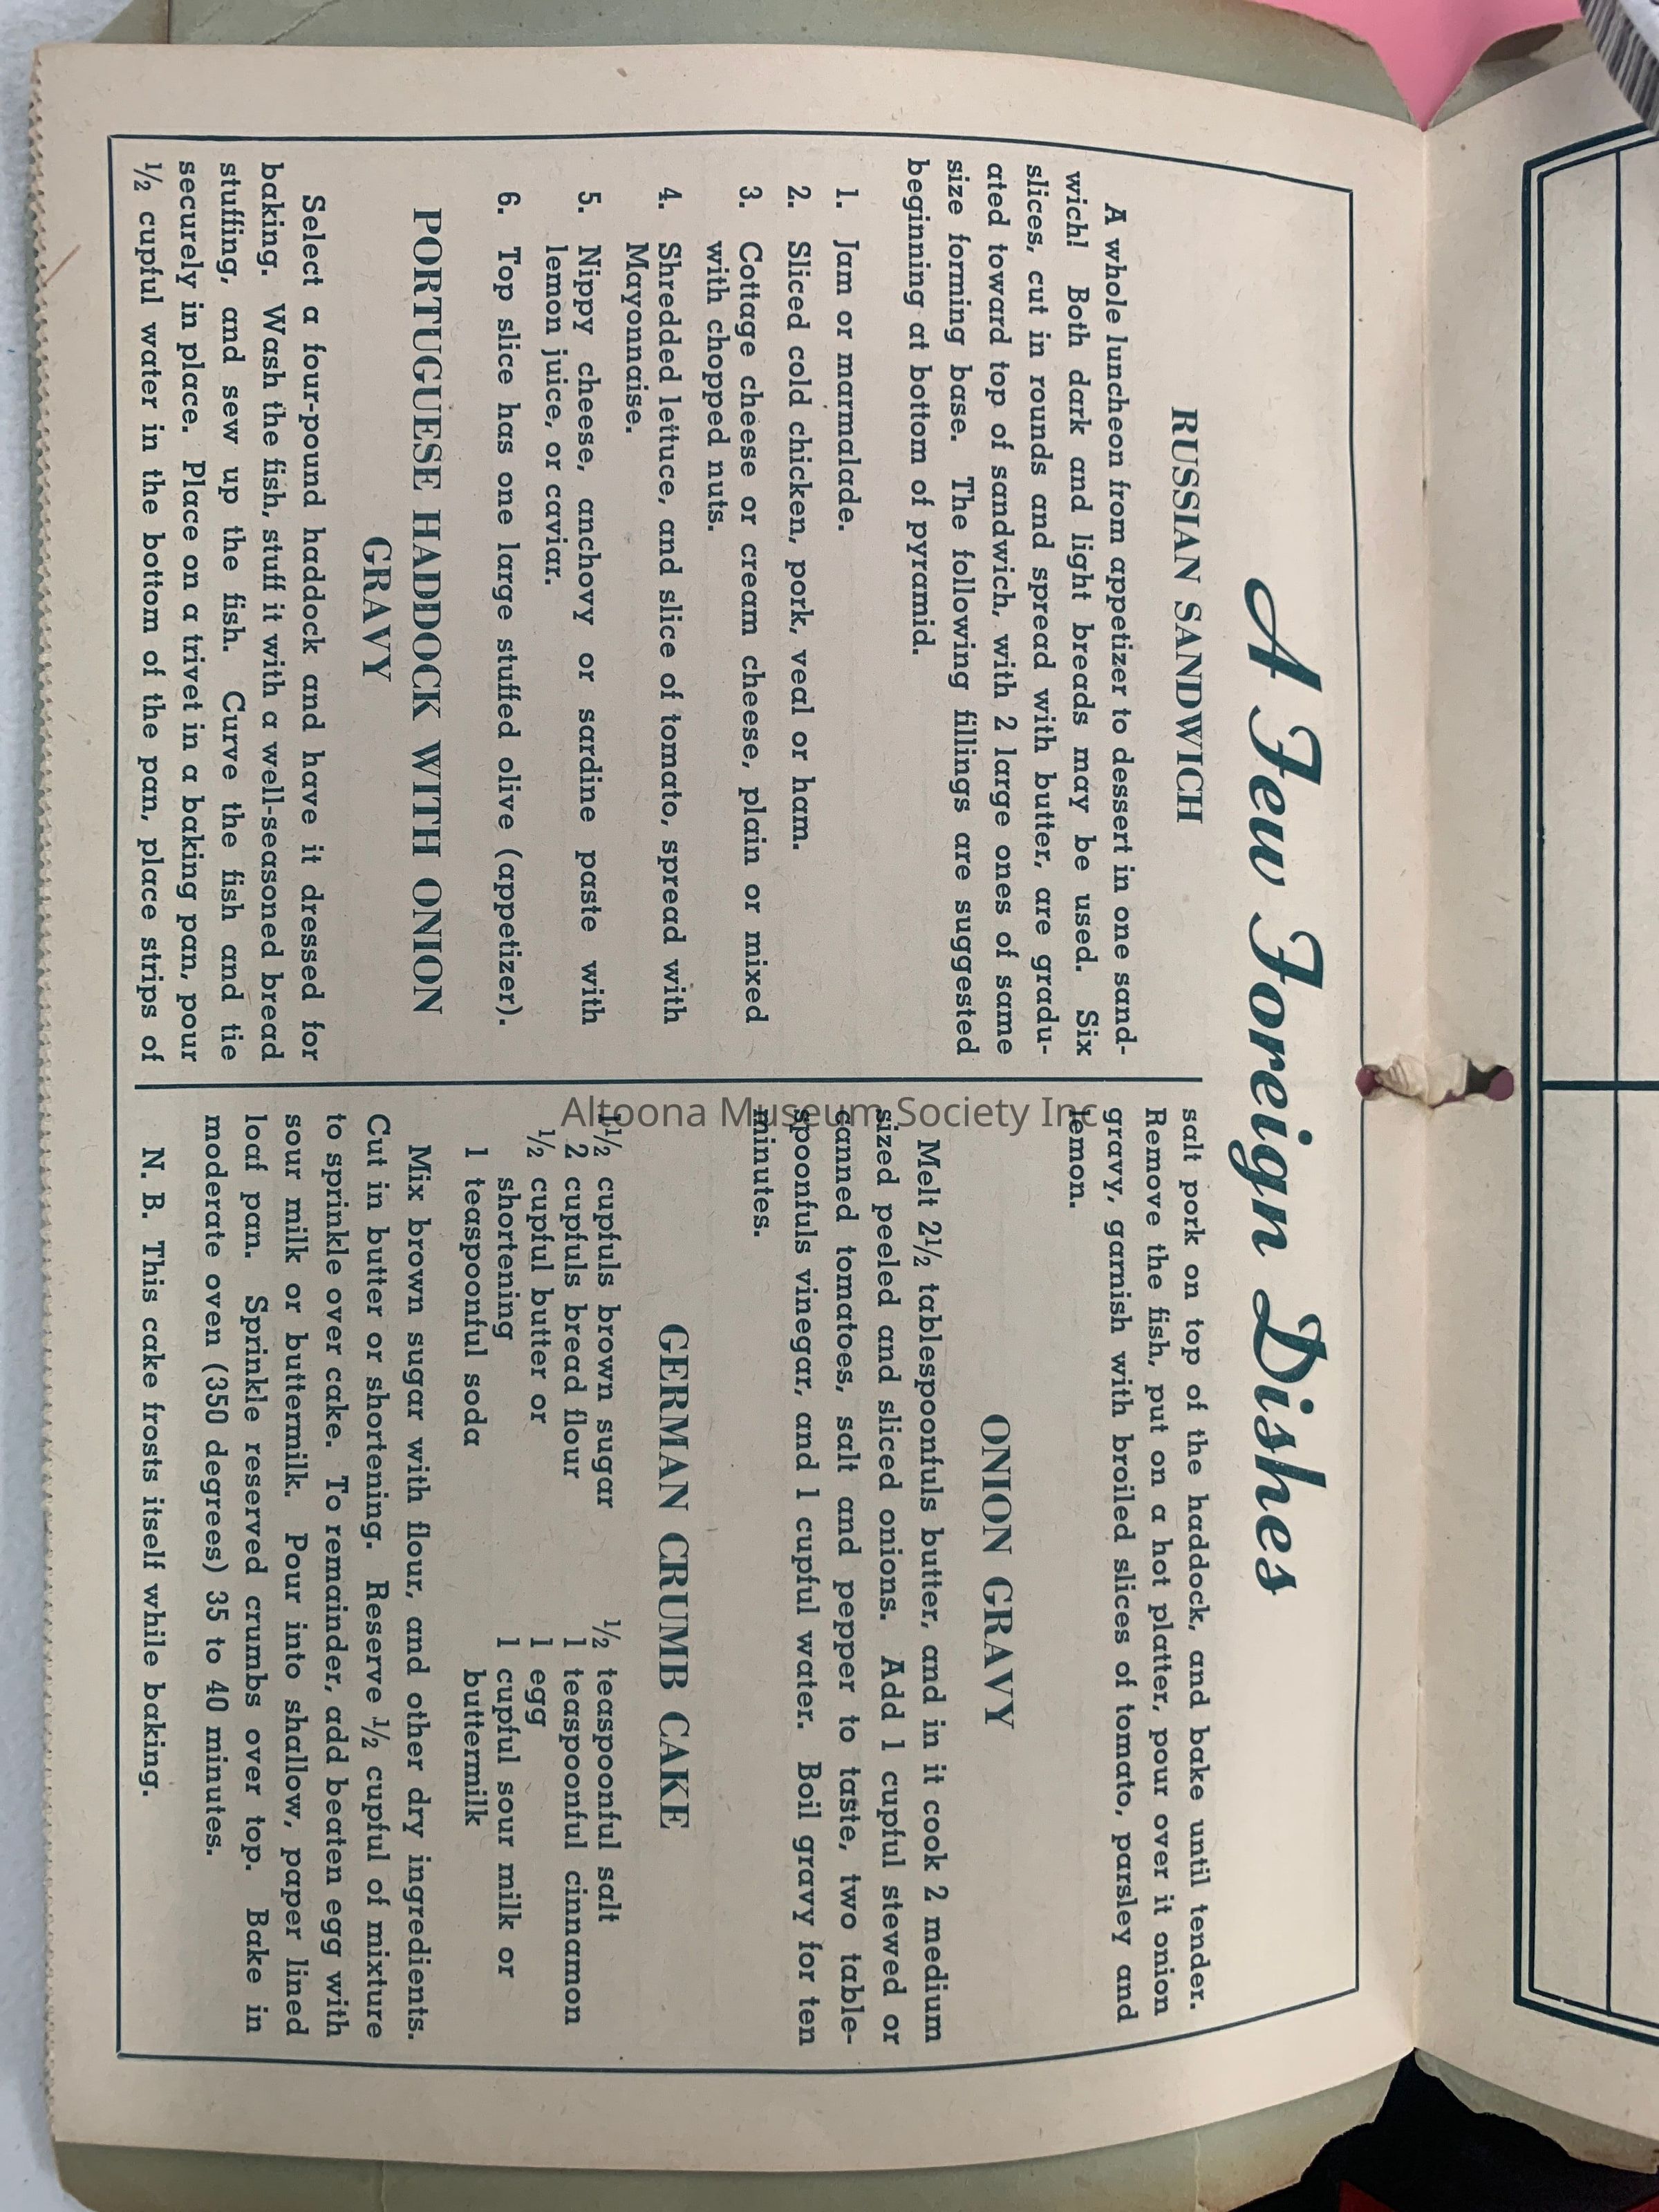 A Few Foreign Dishes
RUSSIAN SANDWICH
A whole luncheon from appetizer to dessert in one sand-
wich! Both dark and light breads may be used. Six
slices, cut in rounds and spread with butter, are gradu-
ated toward top of sandwich, with 2 large ones of same
size forming base. The following fillings are suggested
beginning at bottom of pyramid.
1. Jam or marmalade.
2. Sliced cold chicken, pork, veal or ham.
3. Cottage cheese or cream cheese, plain or mixed
with chopped nuts.
4. Shredded lettuce, and slice of tomato, spread with
Mayonnaise.
5. Nippy cheese, anchovy or sardine paste with
lemon juice, or caviar.
6. Top slice has one large stuffed olive (appetizer).
PORTUGUESE HADDOCK WITH ONION
GRAVY
Select a four-pound haddock and have it dressed for
baking. Wash the fish, stuff it with a well-seasoned bread
stuffing, and sew up the fish. Curve the fish and tie
securely in place. Place on a trivet in a baking pan, pour
½ cupful water in the bottom of the pan, place strips of
salt pork on top of the haddock, and bake until tender.
Remove the fish, put on a hot platter, pour over it onion
gravy, garnish with broiled slices of tomato, parsley and
lemon.
ONION GRAVY
Melt 2½ tablespoonfuls butter, and in it cook 2 medium
sized peeled and sliced onions. Add 1 cupful stewed or
canned tomatoes, salt and pepper to taste, two table-
spoonfuls vinegar, and 1 cupful water. Boil gravy for ten
minutes.
GERMAN CRUMB CAKE
1½ cupfuls brown sugar
2 cupfuls bread flour
½ cupful butter or
shortening
1 teaspoonful soda
½ teaspoonful salt
1 teaspoonful cinnamon
1 egg
1 cupful sour milk or
buttermilk
Mix brown sugar with flour, and other dry ingredients.
Cut in butter or shortening. Reserve ½ cupful of mixture
to sprinkle over cake. To remainder, add beaten egg with
sour milk or buttermilk. Pour into shallow, paper lined
loaf pan. Sprinkle reserved crumbs over top. Bake in
moderate oven (350 degrees) 35 to 40 minutes.
N. B. This cake frosts itself while baking.
Altoona Museum Society Inc